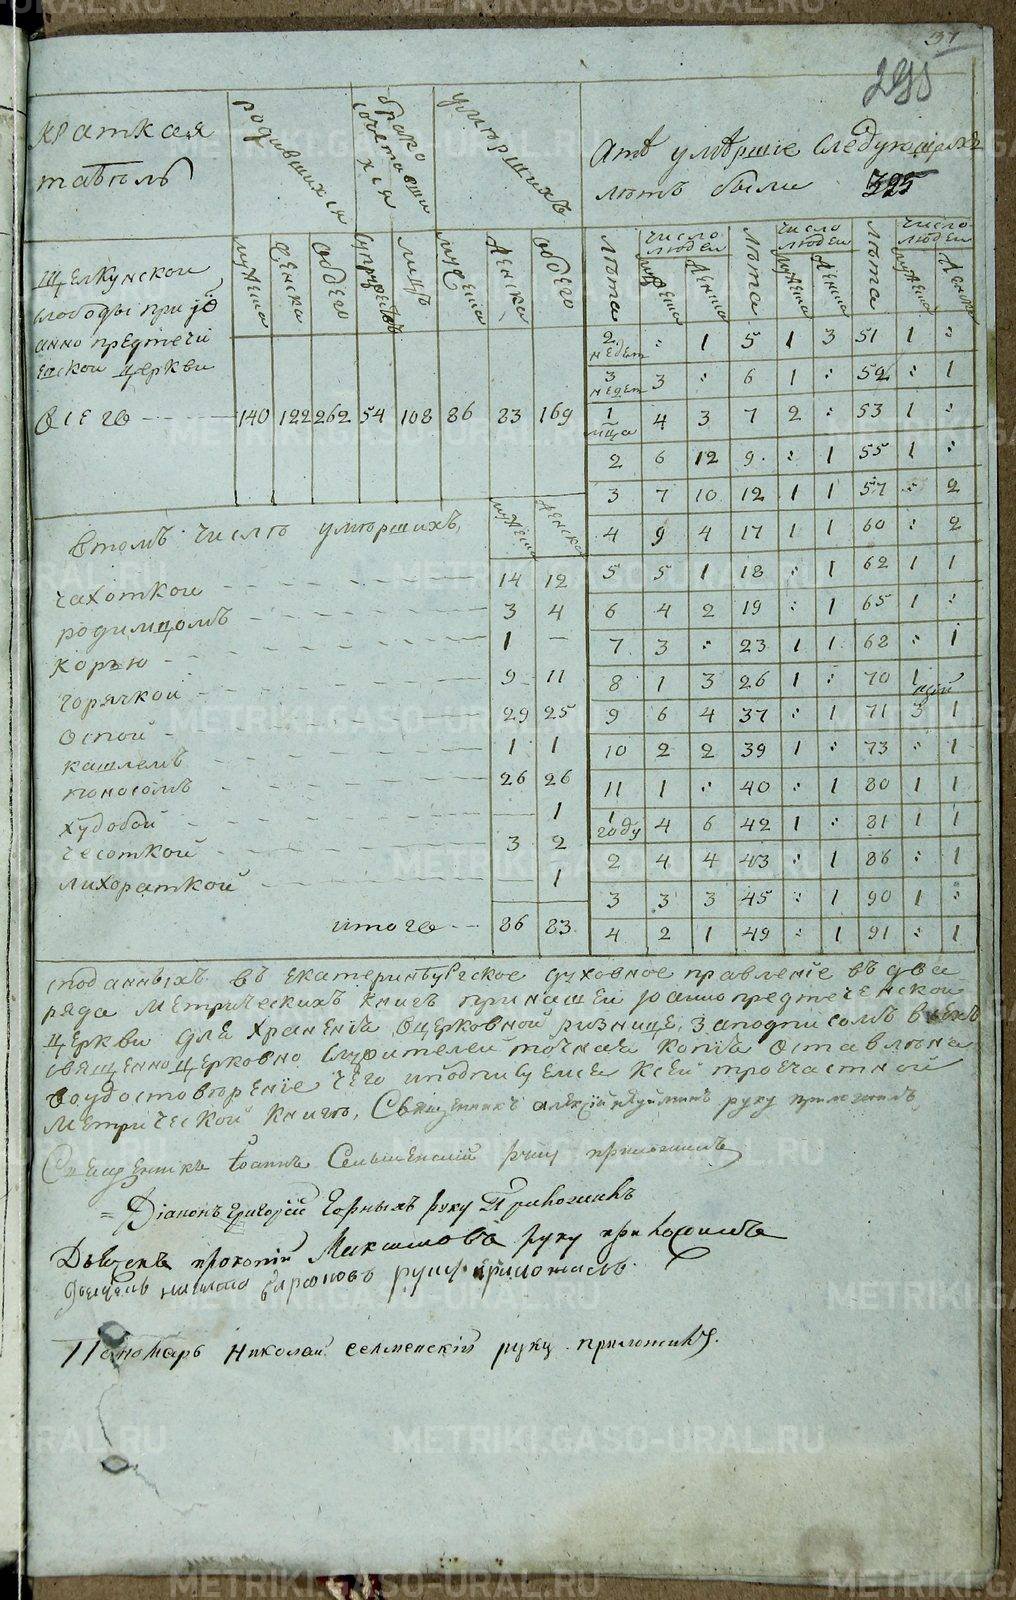 37
295
краткая
табель
родившихся
бракосочетавши
хся
умершихъ
Атѣ умѣршіе следующихъ
лѣтъ были 325
Щелкунской
слободы при Іо
анно предтечи
енской церкви
мужеска женска обоего супружествъ лицъ мужеска женска обоего
всего 140 122 262 54 108 86 83 169
лѣта число людей мужеска женска лѣта число людей мужеска женска лѣта число людей мужеска женска
2 недел : 1 5 1 3 51 1 :
3 недел 3 : 6 1 : 52 : 1
1 мца 4 3 7 2 : 53 1 :
2 6 12 9 : 1 55 1 :
3 7 10 12 1 1 57 : 2
4 9 4 17 1 1 60 : 2
5 5 1 18 : 1 62 1 1
6 4 2 19 : 1 65 1 :
7 3 : 23 1 1 68 : 1
8 1 3 26 1 : 70 1
9 6 4 37 : 1 71 3 1
10 2 2 39 1 : 73 : 1
11 1 : 40 : 1 80 1 1
1 году 4 6 42 1 : 81 1 1
2 4 4 43 : 1 86 : 1
3 3 3 45 : 1 90 1 :
4 2 1 49 : 1 91 : 1
Втомъ числѣ умѣршихъ, мужеска женска
чахоткой 14 12
родимцомъ 3 4
корью 1 —
горячкой 9 11
оспой 29 25
кашлемъ 1 1
поносомъ 26 26
худобой 1
чесоткой 3 2
лихораткой 1
итого 86 83
споданныхъ въ екатеринбургское духовное правленіе въ два
ряда метрическихъ книгъ при нашей іоаннопредтеченской
церкви для храненія вцерковной ризнице, заподписомъ всехъ
священноцерковно служителей точная копія оставлена
воудостовѣреніе чего иподписуемся ксей троечастной
метрической книгѣ, Священникъ алексій руку приложилъ
Священникъ Іоаннъ Селменскій руку приложилъ
Діаконъ григорій Горныхъ руку приложилъ
Дьячекъ прокопій Максимовъ руку приложилъ
дьячекъ руку приложилъ.
Пономарь Николай селменскій руку приложилъ.
METRIKI.GASO-URAL.RU